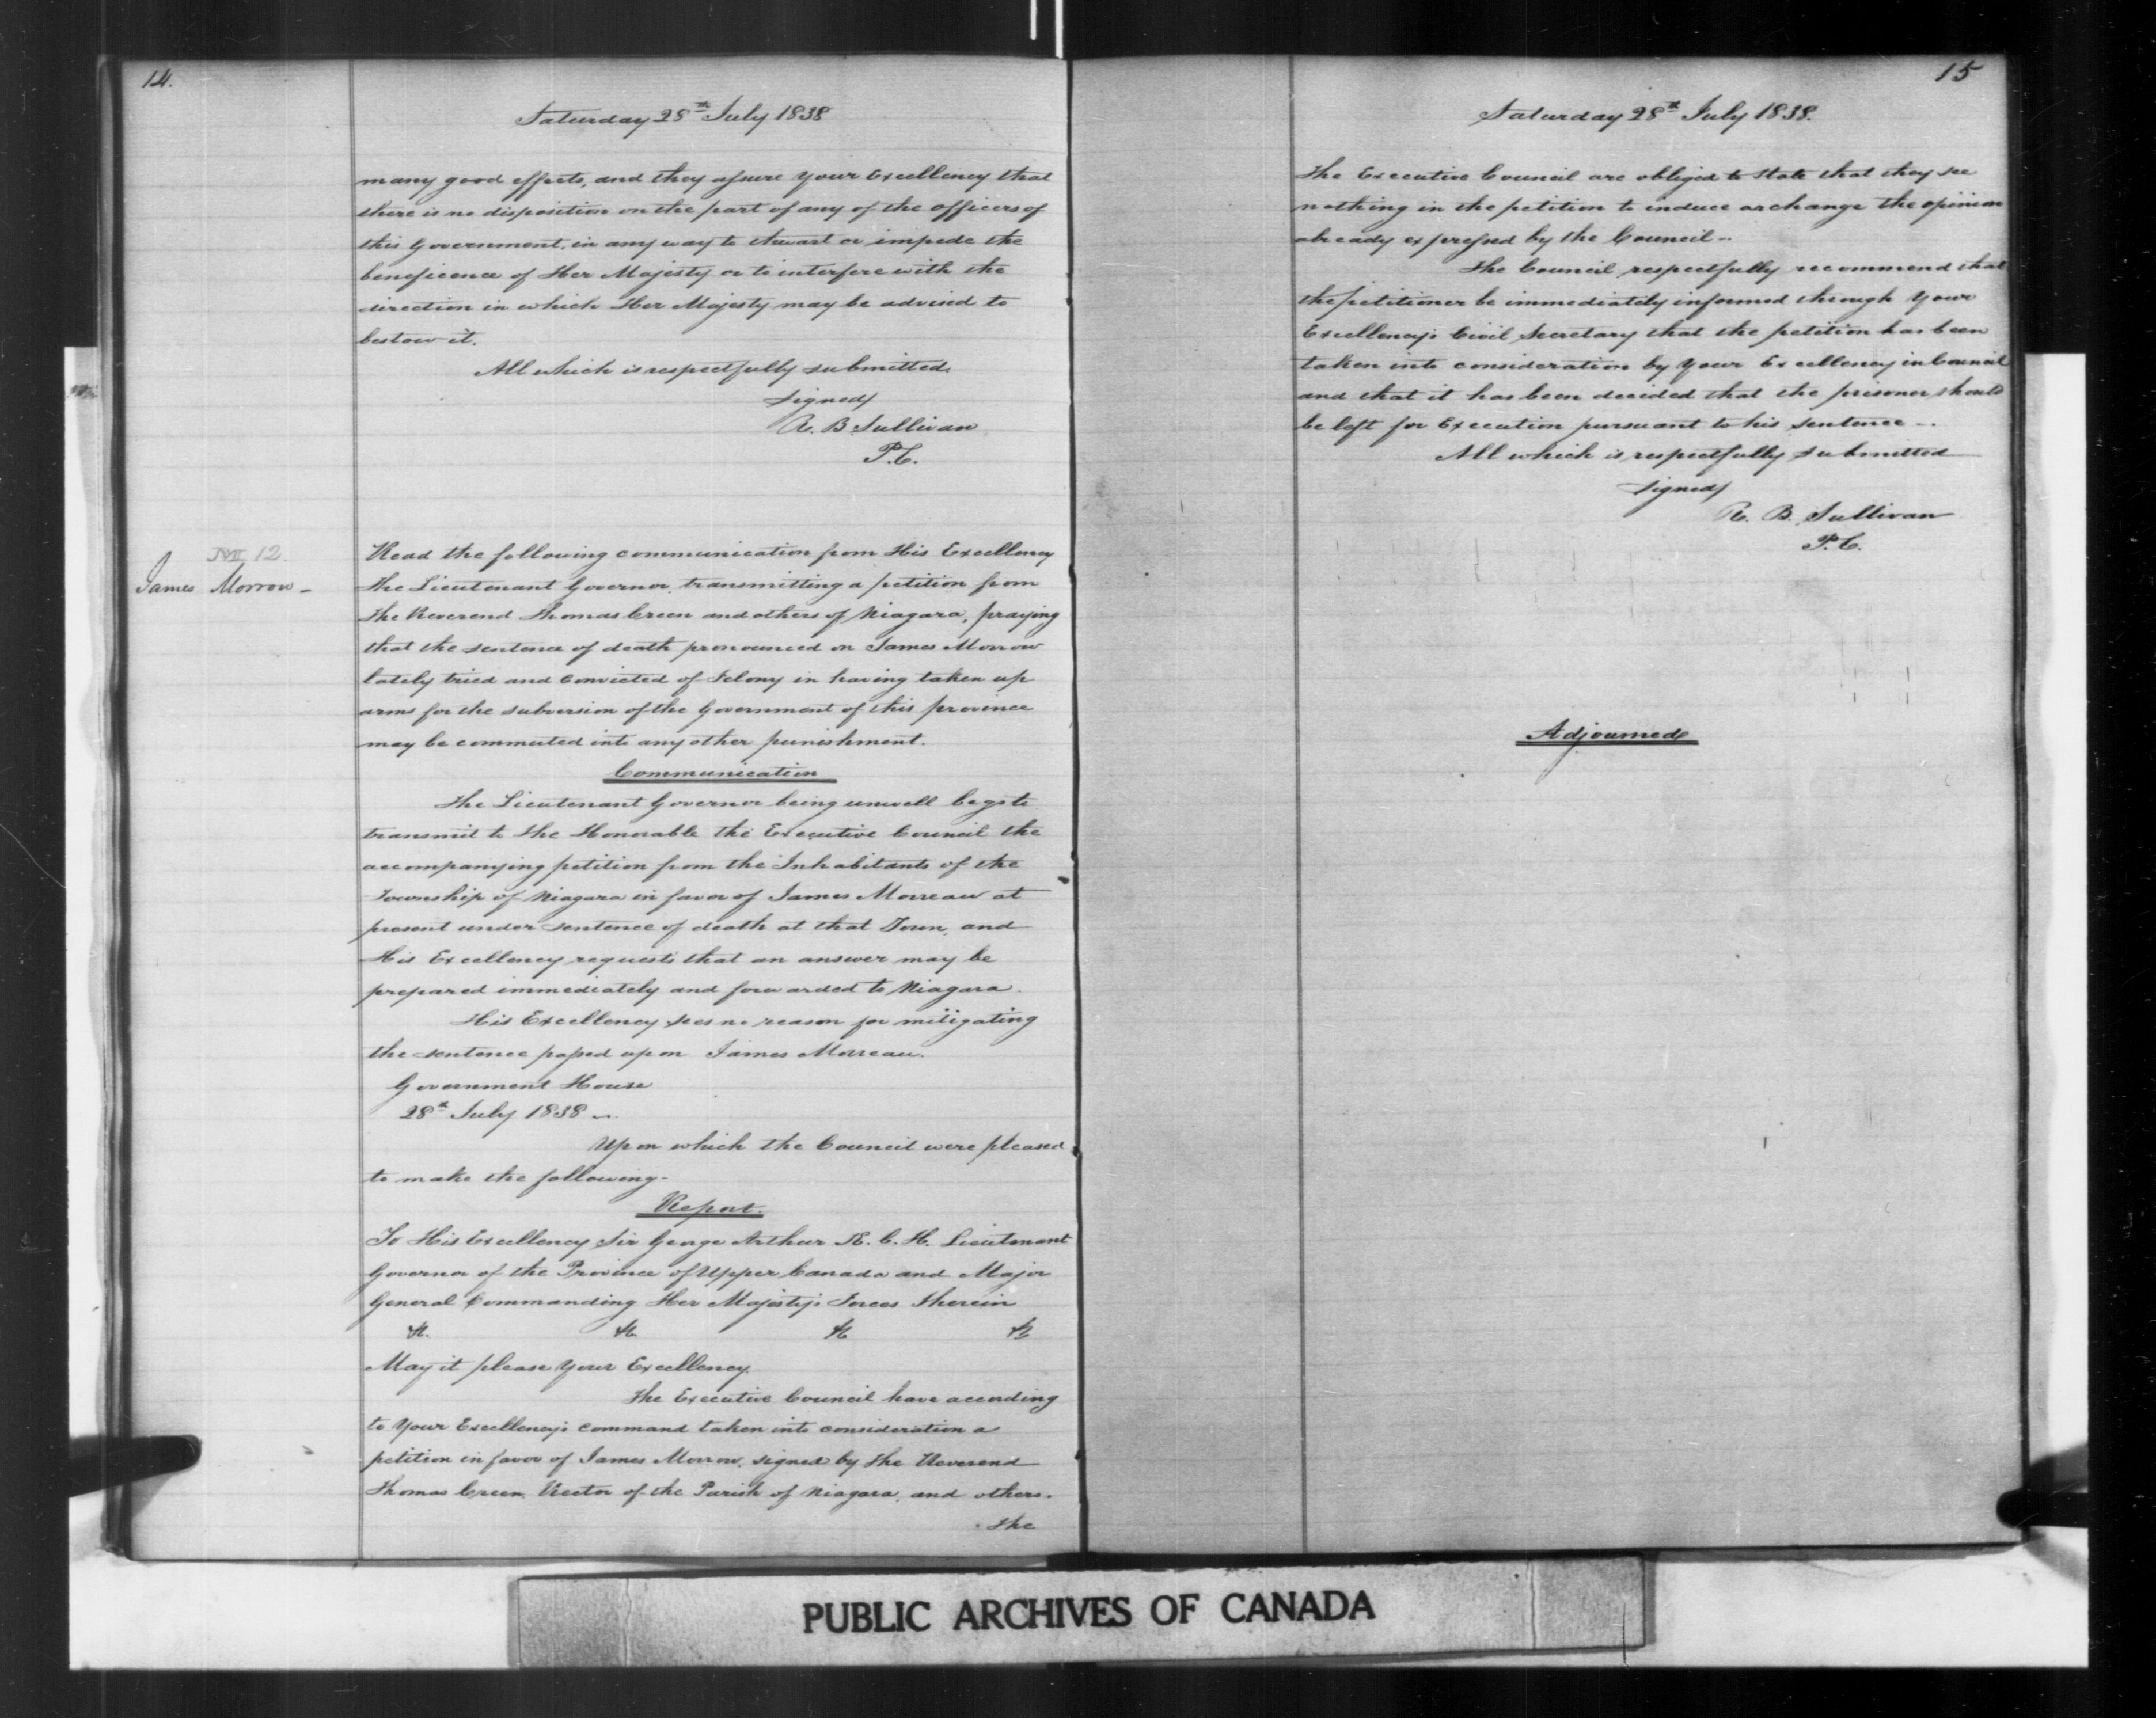 14.
Saturday 28th July 1838
many good effects, and they assure Your Excellency that
there is no disposition on the part of any of the officers of
this Government, in any way to thwart or impede the
beneficence of Her Majesty or to interfere with the
direction in which Her Majesty may be advised to
bestow it.
All which is respectfully submitted.
Signed
R. B Sullivan
P.C.
12.
James Morrow -
Read the following communication from His Excellency
the Lieutenant Governor, transmitting a petition from
the Reverend Thomas Creen and others of Niagara, praying
that the sentence of death pronounced on James Morrow
lately tried and Convicted of Felony in having taken up
arms for the subversion of the Government of this province
may be commuted into any other punishment.
Communication
The Lieutenant Governor being unwell begs to
transmit to the Honorable the Executive Council the
accompanying petition from the Inhabitants of the
Township of Niagara in favor of James Morreau at
present under sentence of death at that Town, and
His Excellency requests that an answer may be
prepared immediately and forwarded to Niagara.
His Excellency sees no reason for mitigating
the sentence passed upon James Morreau.
Government House
28th July 1838 -
Upon which the Council were pleased
to make the following-
Report.
To His Excellency Sir George Arthur K. C. H. Lieutenant
Governor of the Province of Upper Canada and Major
General Commanding Her Majesty's Forces therein
&c. &c. &c &c
May it please Your Excellency.
The Executive Council have according
to Your Excellency's command taken into consideration a
petition in favor of James Morrow, signed by the Reverend
Thomas Creen, Rector of the Parish of Niagara, and others.
The
15
Saturday 28th July 1838.
The Executive Council are obliged to state that they see
nothing in the petition to induce a change the opinion
already expressed by the Council -
The Council respectfully recommend that
the petitioner be immediately informed through Your
Excellency's Civil Secretary that the petition has been
taken into consideration by Your Excellency in Council
and that it has been decided that the prisoner should
be left for Execution pursuant to his sentence -.
All which is respectfully submitted
Signed
R. B. Sullivan
P.C.
Adjourned
PUBLIC ARCHIVES OF CANADA